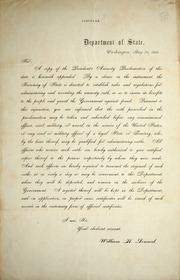 CIRCULAR.
Department of State,
Washington, May 29, 1865.
Sir:
A copy of the President's Amnesty Proclamation of this
date is herewith appended. By a clause in the instrument, the
Secretary of State is directed to establish rules and regulations for
administering and recording the amnesty oath, so as to insure its benefit
to the people and guard the Government against fraud. Pursuant to
this injunction, you are informed that the oath prescribed in the
proclamation may be taken and subscribed before any commissioned
officer, civil, military, or naval, in the service of the United States,
or any civil or military officer of a loyal State or Territory, who,
by the laws thereof, may be qualified for administering oaths. All
officers who receive such oaths are hereby authorized to give certified
copies thereof to the persons respectively by whom they were made.
And such officers are hereby required to transmit the originals of such
oaths, at as early a day as may be convenient, to this Department,
where they will be deposited, and remain in the archives of the
Government. A register thereof will be kept in the Department,
and on application, in proper cases, certificates will be issued of such
records in the customary form of official certificates.
I am, Sir,
Your obedient servant,
William H. Seward.